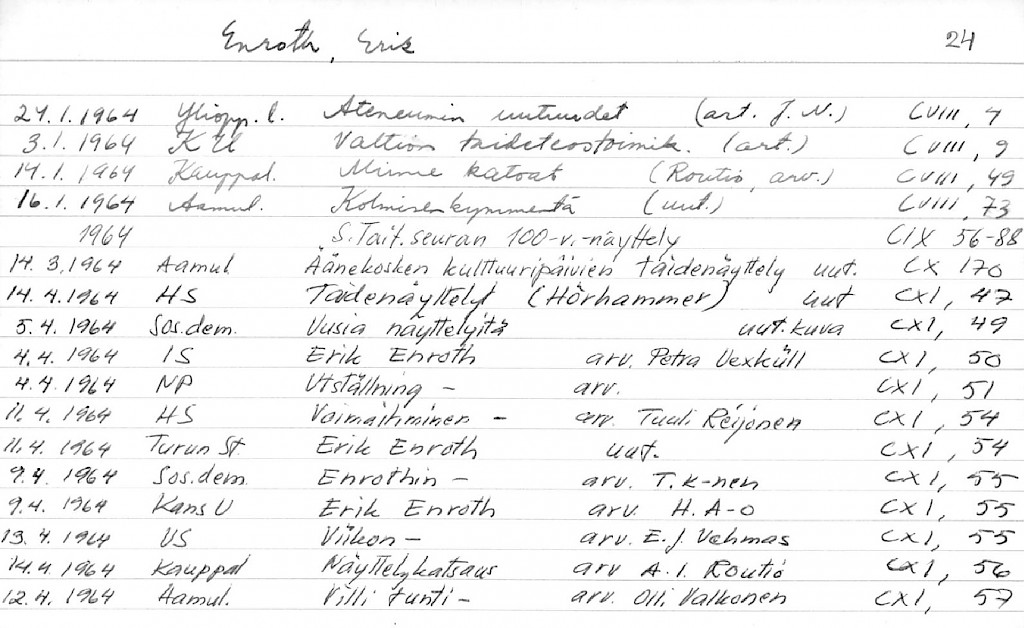 Enroth, Erik 24
24.1.1964 Yliopp. l. Ateneumin uutuudet (art. J. N.) CVIII, 7
3.1.1964 K U Valtion taideteostoimik. (art.) CVIII, 9
14.1.1964 Kauppal. Minne katoat (Routio, arv.) CVIII, 49
16.1.1964 Aamul. Kolmisenkymmentä (uut.) CVIII, 73
1964 S. Tait. seuran 100-v.-näyttely CIX 56-88
14.3.1964 Aamul Äänekosken kulttuuripäivien taidenäyttely uut. CX 170
14.4.1964 HS Taidenäyttelyt (Hörhammer) uut CXI, 47
5.4.1964 Sos.dem. Uusia näyttelyitä uut.kuva CXI, 49
4.4.1964 IS Erik Enroth arv. Petra Uexküll CXI, 50
4.4.1964 NP Utställning - arv. CXI, 51
11.4.1964 HS Voimaihminen - arv. Tuuli Reijonen CXI, 54
11.4.1964 Turun St. Erik Enroth uut. CXI, 54
9.4.1964 Sos.dem. Enrothin - arv. T. K-nen CXI, 55
9.4.1964 Kans U Erik Enroth arv. H. A-o CXI, 55
13.4.1964 US Viikon - arv. E.J. Vehmas CXI, 55
14.4.1964 Kauppal Näyttelykatsaus arv A. I. Routio CXI, 56
12.4.1964 Aamul. Villi tunti - arv. Olli Valkonen CXI, 57